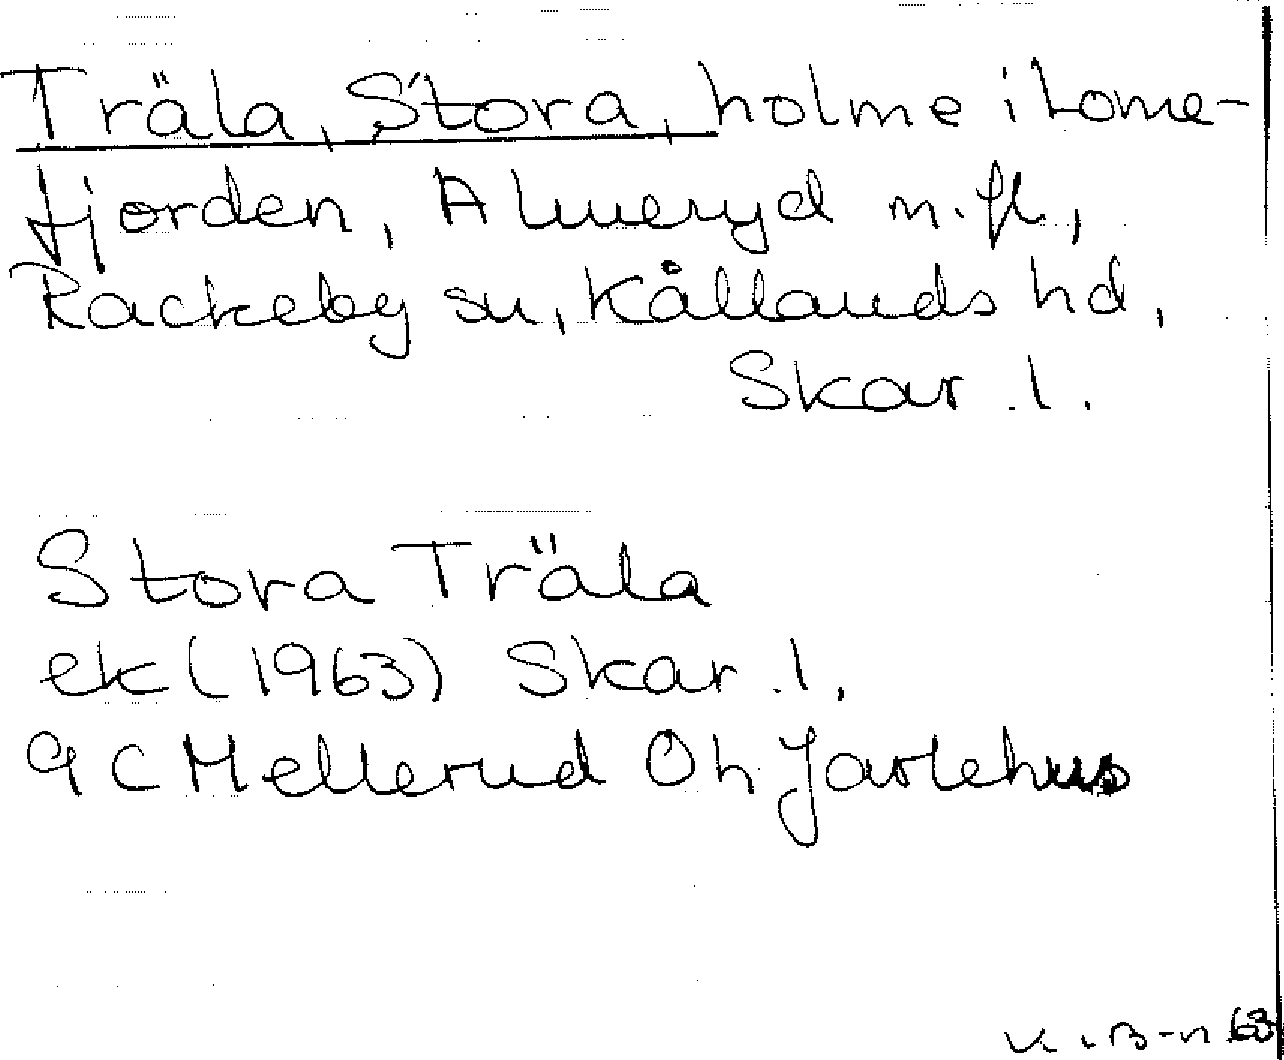 Träla, Stora, holme i Lome-
fjorden, Almeryd m.fl.,
Rackeby sn, Kållands hd,
Skar. l.
Stora Träla
ek (1963) Skar. l.
9 C Mellerud Öh Jarlehus
K.B-n 63